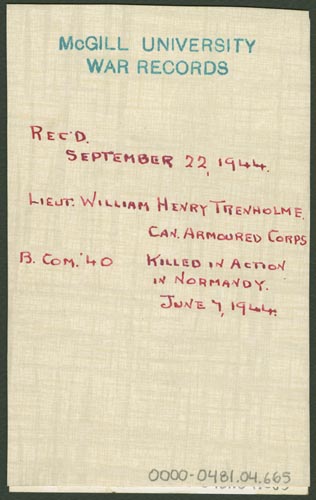 McGILL UNIVERSITY
WAR RECORDS
REC'D.
SEPTEMBER 22, 1944.
LIEUT. WILLIAM HENRY TRENHOLME.
CAN. ARMOURED CORPS
B. COM. '40 KILLED IN ACTION
IN NORMANDY.
JUNE 7, 1944.
0000-0481.04.665